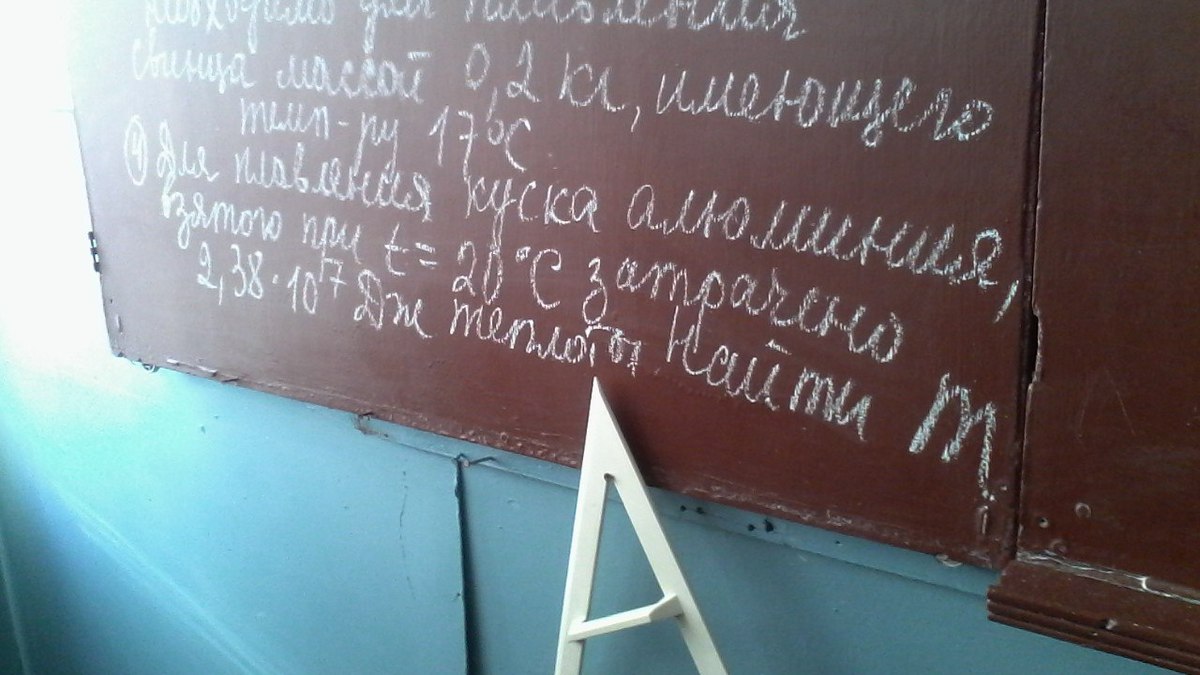 необходимо для плавления
свинца массой 0,2 кг, имеющего
темп-ру 17°C
④ Для плавления куска алюминия,
взятого при t = 20°C затрачено
2,38·10¹⁷ Дж теплоты Найти m